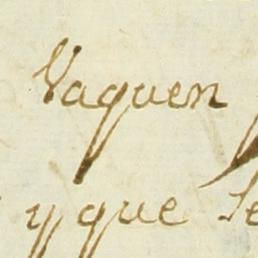 Vaquen
y que Se